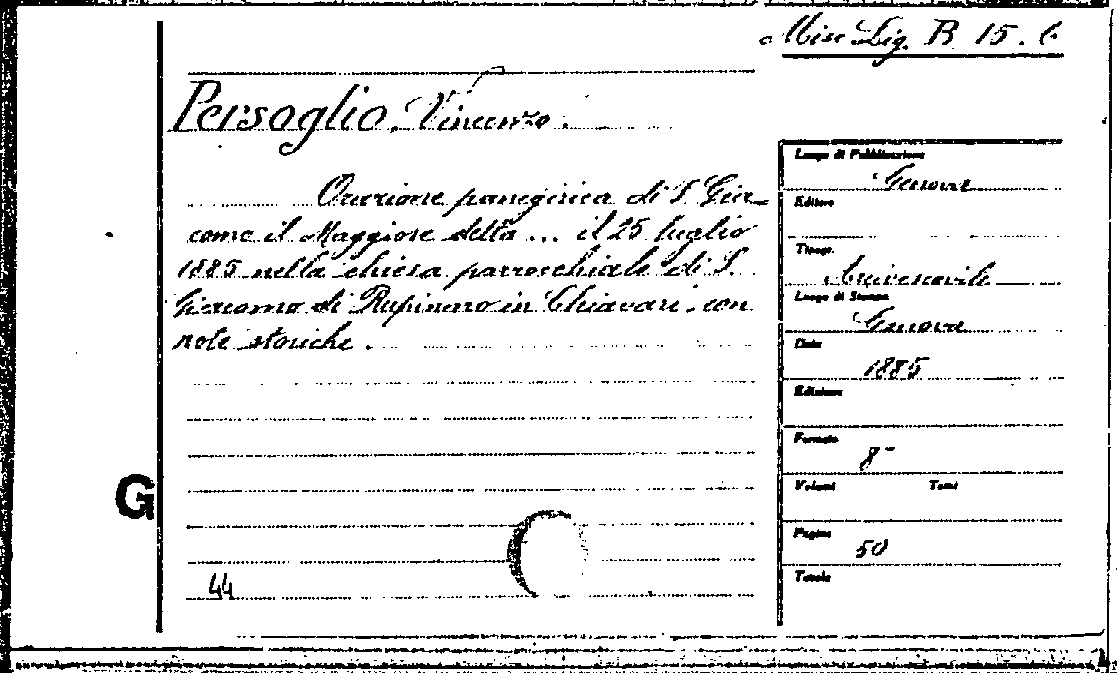 Misc. Lig. B. 15. 6
Persoglio, Vincenzo.
Orazione panegirica di S. Gia-
como il Maggiore detta ... il 25 luglio
1885 nella chiesa parrocchiale di S.
Giacomo di Rupinaro in Chiavari, con
note storiche.
Luogo di Pubblicazione
Genova
Editore
Tipogr.
Arcivescovile
Luogo di Stampa
Genova
Data
1885
Edizione
Formato
8°
Volumi Tomi
Pagine
50
Tavole
G
44